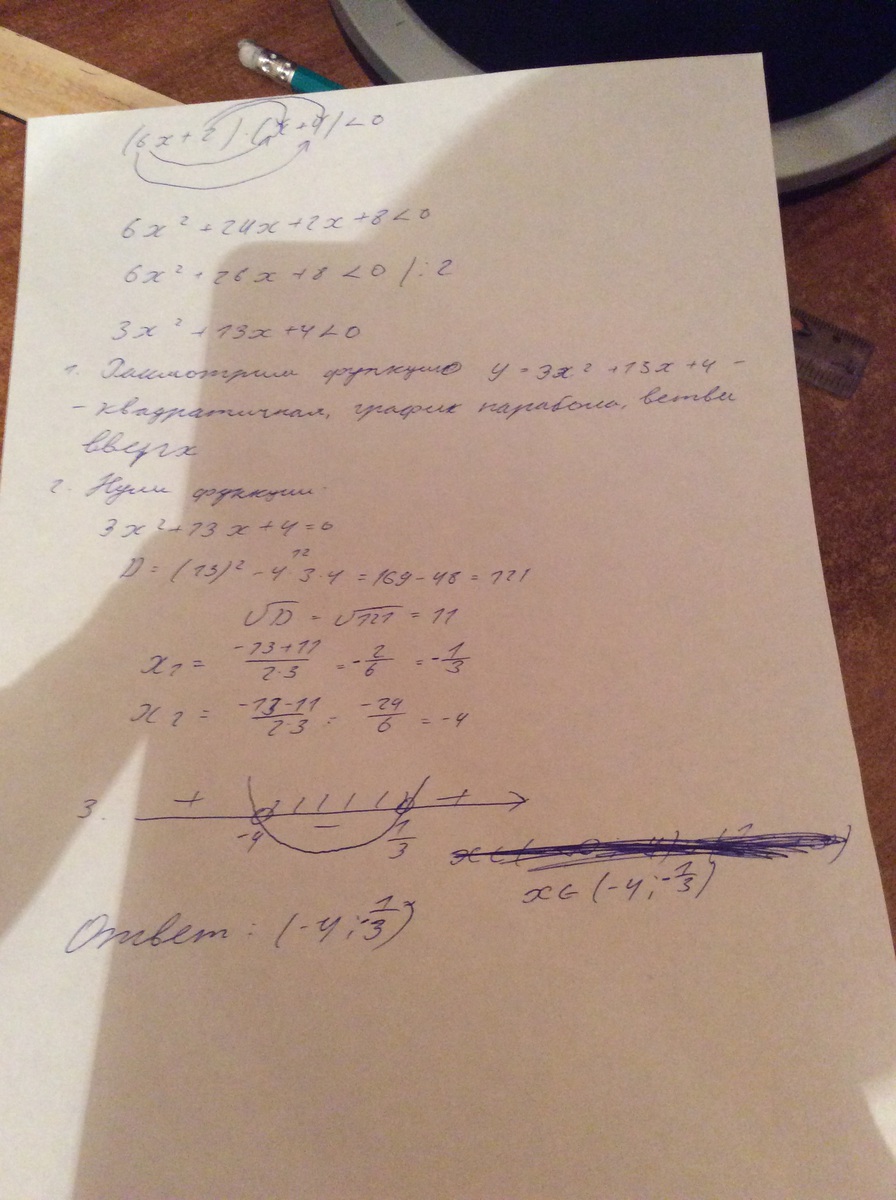 (6x+2)·(x+4)<0
6x²+24x+2x+8<0
6x²+26x+8<0 |:2
3x²+13x+4<0
1. Рассмотрим функцию y=3x²+13x+4 -
- квадратичная, график парабола, ветви
вверх
2. Нули функции:
3x²+13x+4=0
12
D=(13)²-4·3·4=169-48=121
√D=√121=11
x₁= (-13+11)/(2·3) = -2/6 = -1/3
x₂= (-13-11)/(2·3) = -24/6 = -4
3. + - +
-4 1/3
x∈(-4;-1/3)
Ответ: (-4;-1/3)